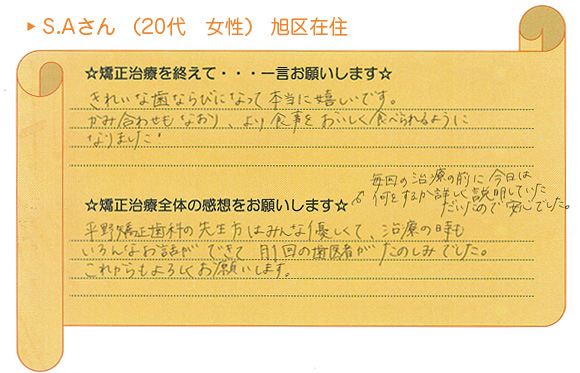 ▶ S.Aさん （20代　女性） 旭区在住
☆矯正治療を終えて・・・一言お願いします☆
きれいな歯ならびになって本当に嬉しいです。
かみ合わせもなおり、より食事をおいしく食べられるように
なりました。
毎回の治療の前に今日は
何をするか詳しく説明していた
だけるので安心でした。
☆矯正治療全体の感想をお願いします☆
平野矯正歯科の先生方はみんな優しくて、治療の時も
いろんなお話ができて月1回の歯医者がたのしみでした。
これからもよろしくお願いします。